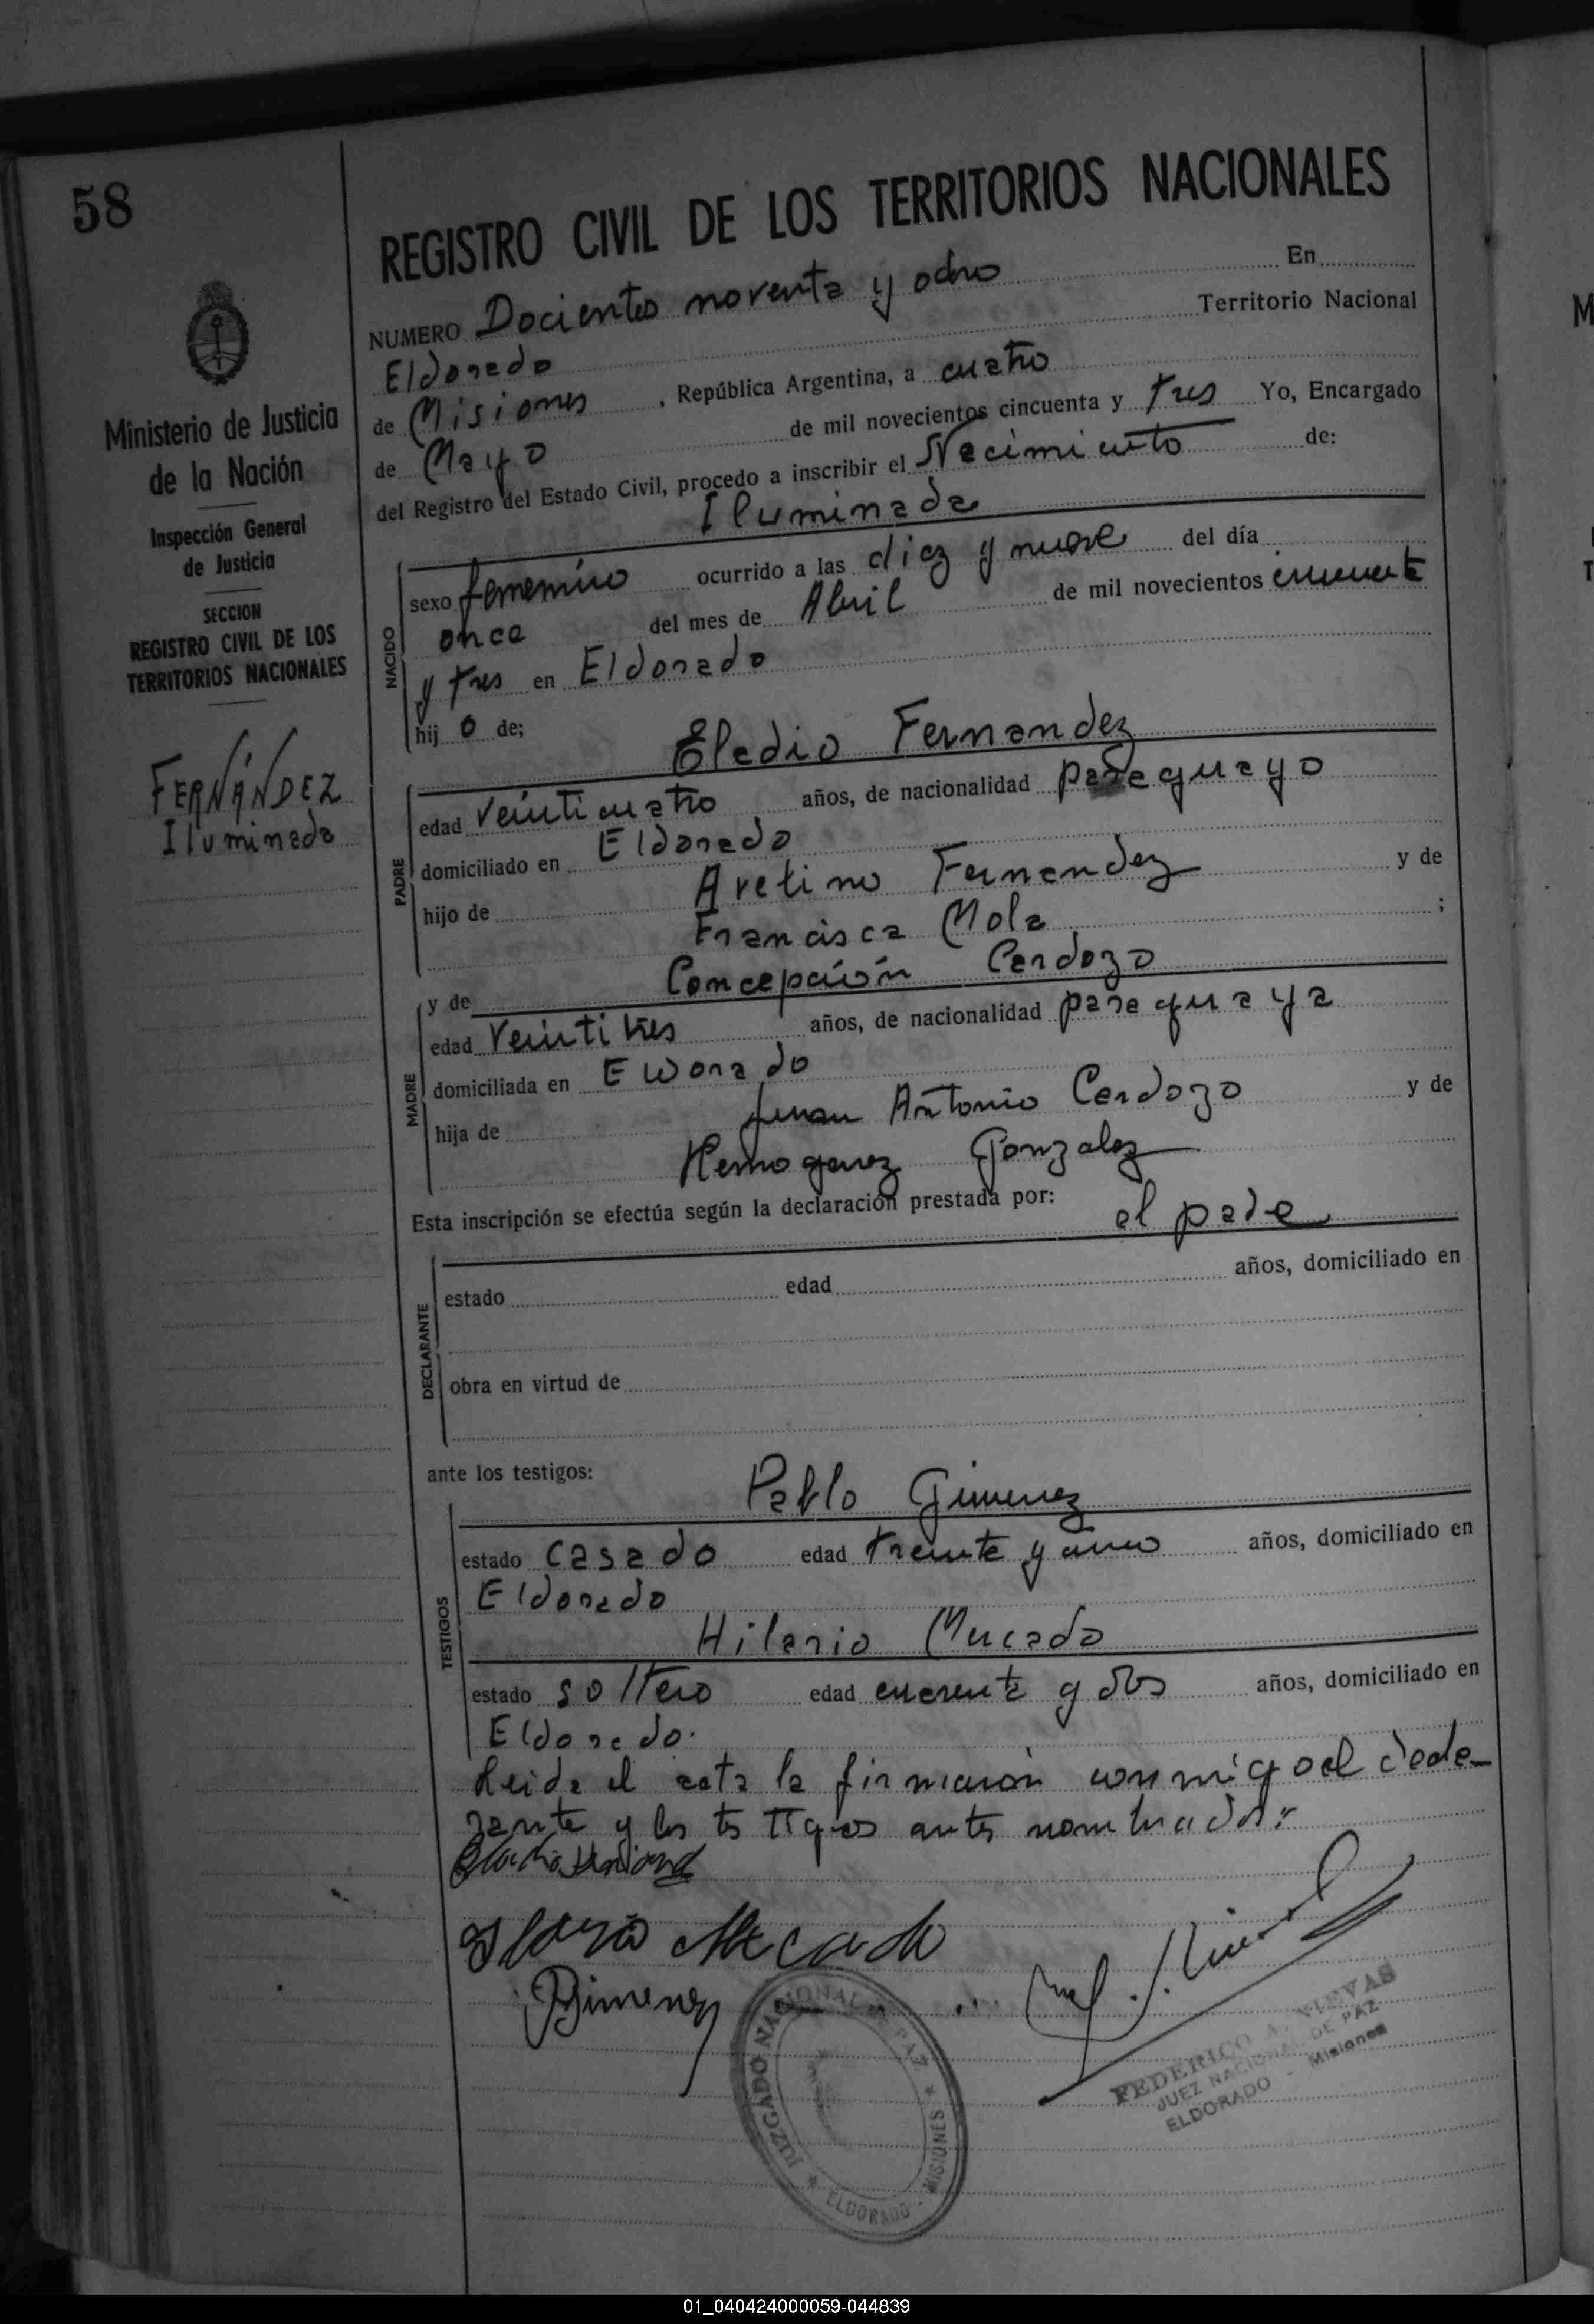 58
REGISTRO CIVIL DE LOS TERRITORIOS NACIONALES
NUMERO Docientos noventa y ocho En
Eldorado Territorio Nacional
de Misiones, República Argentina, a cuatro
de Mayo de mil novecientos cincuenta y tres Yo, Encargado
del Registro del Estado Civil, procedo a inscribir el Nacimiento de:
Iluminada
Ministerio de Justicia
de la Nación
Inspección General
de Justicia
SECCION
REGISTRO CIVIL DE LOS
TERRITORIOS NACIONALES
FERNÁNDEZ
Iluminada
NACIDO
sexo femenino ocurrido a las diez y nueve del día
once del mes de Abril de mil novecientos cincuenta
y tres en Eldorado
hij o de;
Eladio Fernandez
PADRE
edad veinticuatro años, de nacionalidad paraguayo
domiciliado en Eldorado
hijo de Avelino Fernandez y de
Francisca Mola ;
y de Concepción Cardozo
MADRE
edad veintitres años, de nacionalidad paraguaya
domiciliada en Eldorado
hija de Juan Antonio Cardozo y de
Gonzalez
Esta inscripción se efectúa según la declaración prestada por:
el padre
DECLARANTE
estado edad años, domiciliado en
obra en virtud de
ante los testigos:
Pablo Gimenez
TESTIGOS
estado casado edad treinta y uno años, domiciliado en
Eldorado
Hilario Mercado
estado soltero edad cuarenta y dos años, domiciliado en
Eldorado.
Leida el acta la firmaron conmigo el decla-
rante y los testigos antes nombrados.
Mercado
Gimenez
JUZGADO NACIONAL DE PAZ
ELDORADO - MISIONES
FEDERICO A. VIEVAS
JUEZ NACIONAL DE PAZ
ELDORADO - Misiones
01_040424000059-044839